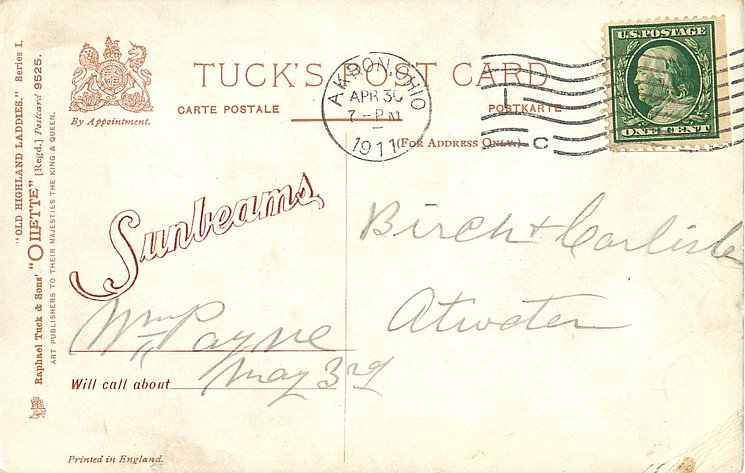 "OLD HIGHLAND LADDIES." Series I.
Raphael Tuck & Sons' "OILETTE" [Regd.] Postcard 9525.
ART PUBLISHERS TO THEIR MAJESTIES THE KING & QUEEN.
By Appointment.
TUCK'S POST CARD
CARTE POSTALE
POSTKARTE
(FOR ADDRESS ONLY.)
AKRON, OHIO
APR 30
7-PM
1911
C
U.S. POSTAGE
ONE CENT
Sunbeams
Birch & Carlisle
Atwater
Wm Payne
Will call about May 3rd
Printed in England.